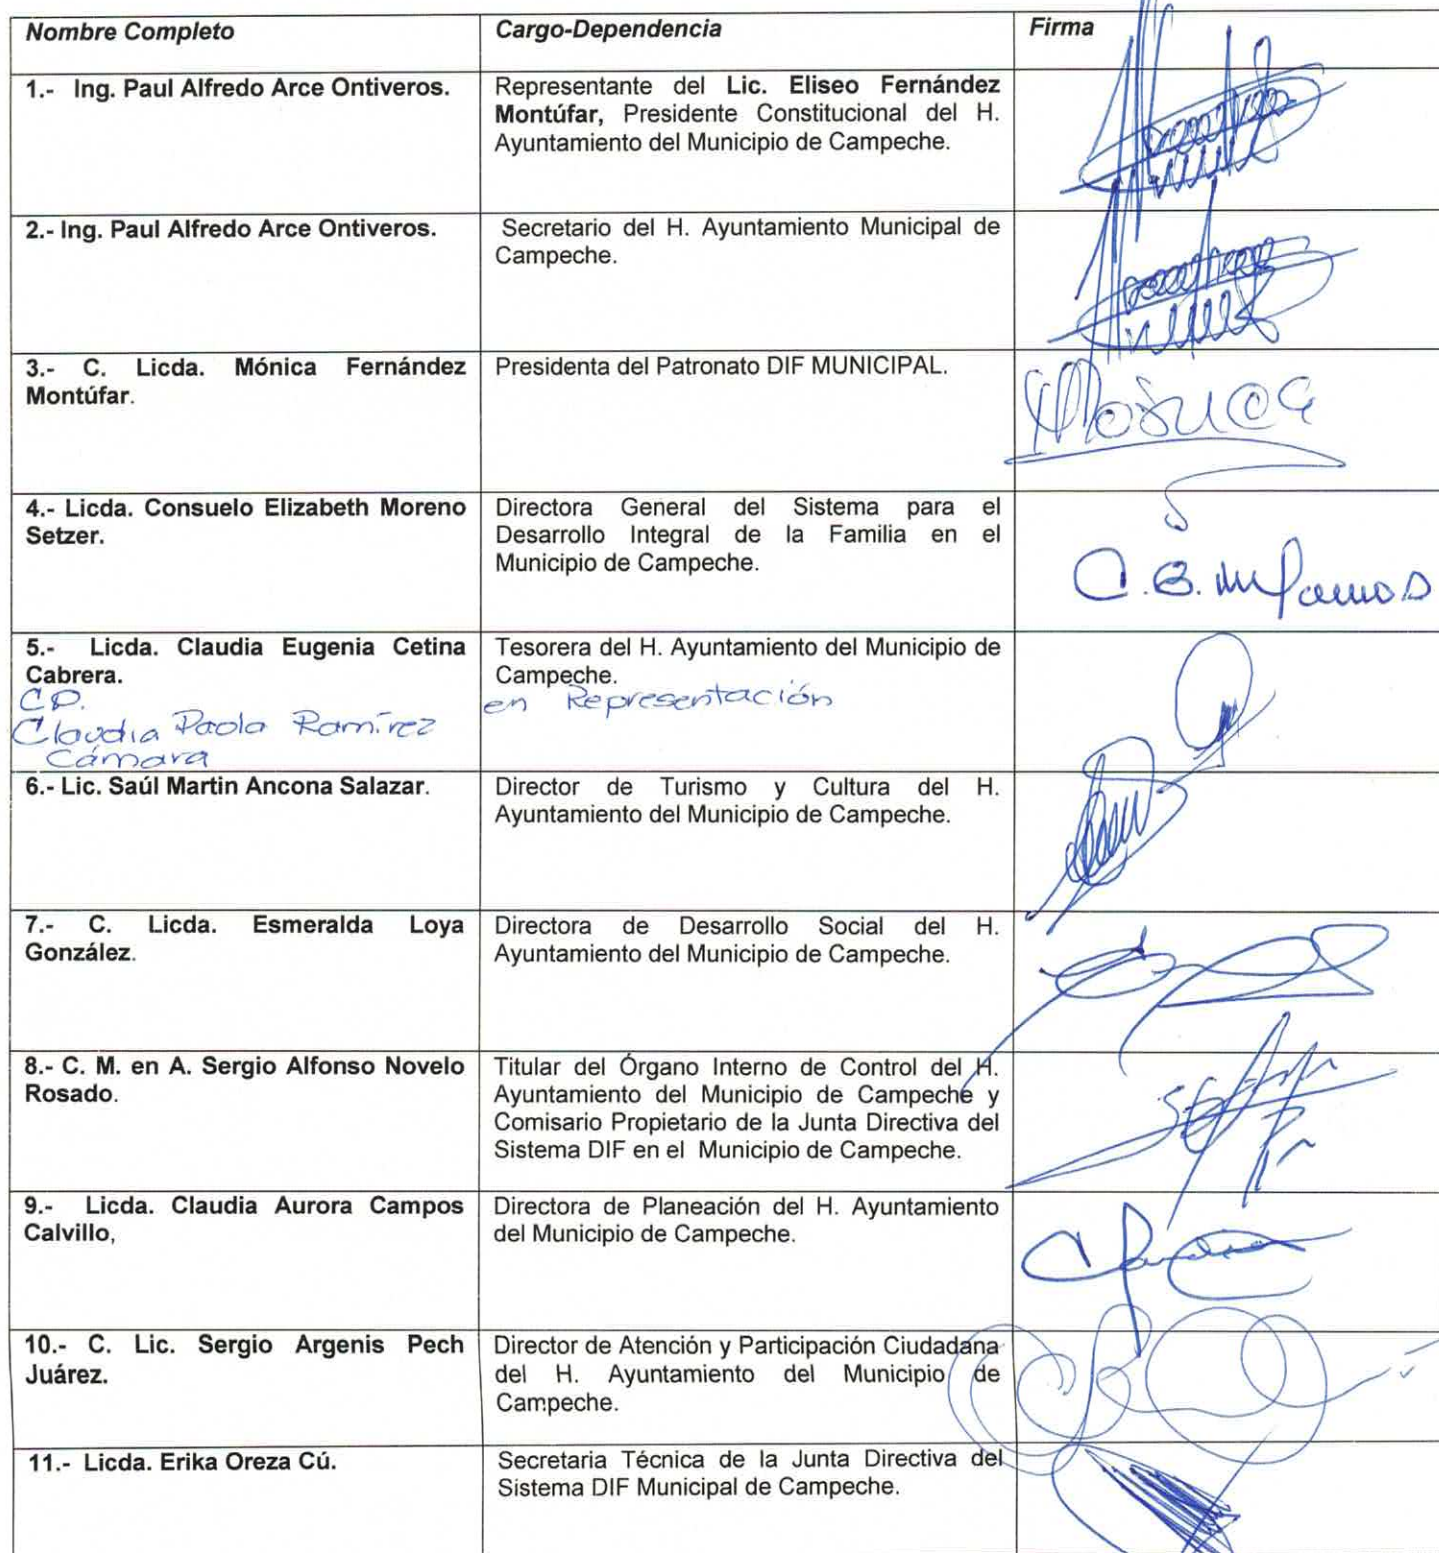 Nombre Completo
Cargo-Dependencia
Firma
1.- Ing. Paul Alfredo Arce Ontiveros.
Representante del Lic. Eliseo Fernández
Montúfar, Presidente Constitucional del H.
Ayuntamiento del Municipio de Campeche.
2.- Ing. Paul Alfredo Arce Ontiveros.
Secretario del H. Ayuntamiento Municipal de
Campeche.
3.- C. Licda. Mónica Fernández
Montúfar.
Presidenta del Patronato DIF MUNICIPAL.
4.- Licda. Consuelo Elizabeth Moreno
Setzer.
Directora General del Sistema para el
Desarrollo Integral de la Familia en el
Municipio de Campeche.
5.- Licda. Claudia Eugenia Cetina
Cabrera.
C.P.
Claudia Paola Ramírez
Cámara
Tesorera del H. Ayuntamiento del Municipio de
Campeche.
en Representación
6.- Lic. Saúl Martin Ancona Salazar.
Director de Turismo y Cultura del H.
Ayuntamiento del Municipio de Campeche.
7.- C. Licda. Esmeralda Loya
González.
Directora de Desarrollo Social del H.
Ayuntamiento del Municipio de Campeche.
8.- C. M. en A. Sergio Alfonso Novelo
Rosado.
Titular del Órgano Interno de Control del H.
Ayuntamiento del Municipio de Campeche y
Comisario Propietario de la Junta Directiva del
Sistema DIF en el Municipio de Campeche.
9.- Licda. Claudia Aurora Campos
Calvillo,
Directora de Planeación del H. Ayuntamiento
del Municipio de Campeche.
10.- C. Lic. Sergio Argenis Pech
Juárez.
Director de Atención y Participación Ciudadana
del H. Ayuntamiento del Municipio de
Campeche.
11.- Licda. Erika Oreza Cú.
Secretaria Técnica de la Junta Directiva del
Sistema DIF Municipal de Campeche.